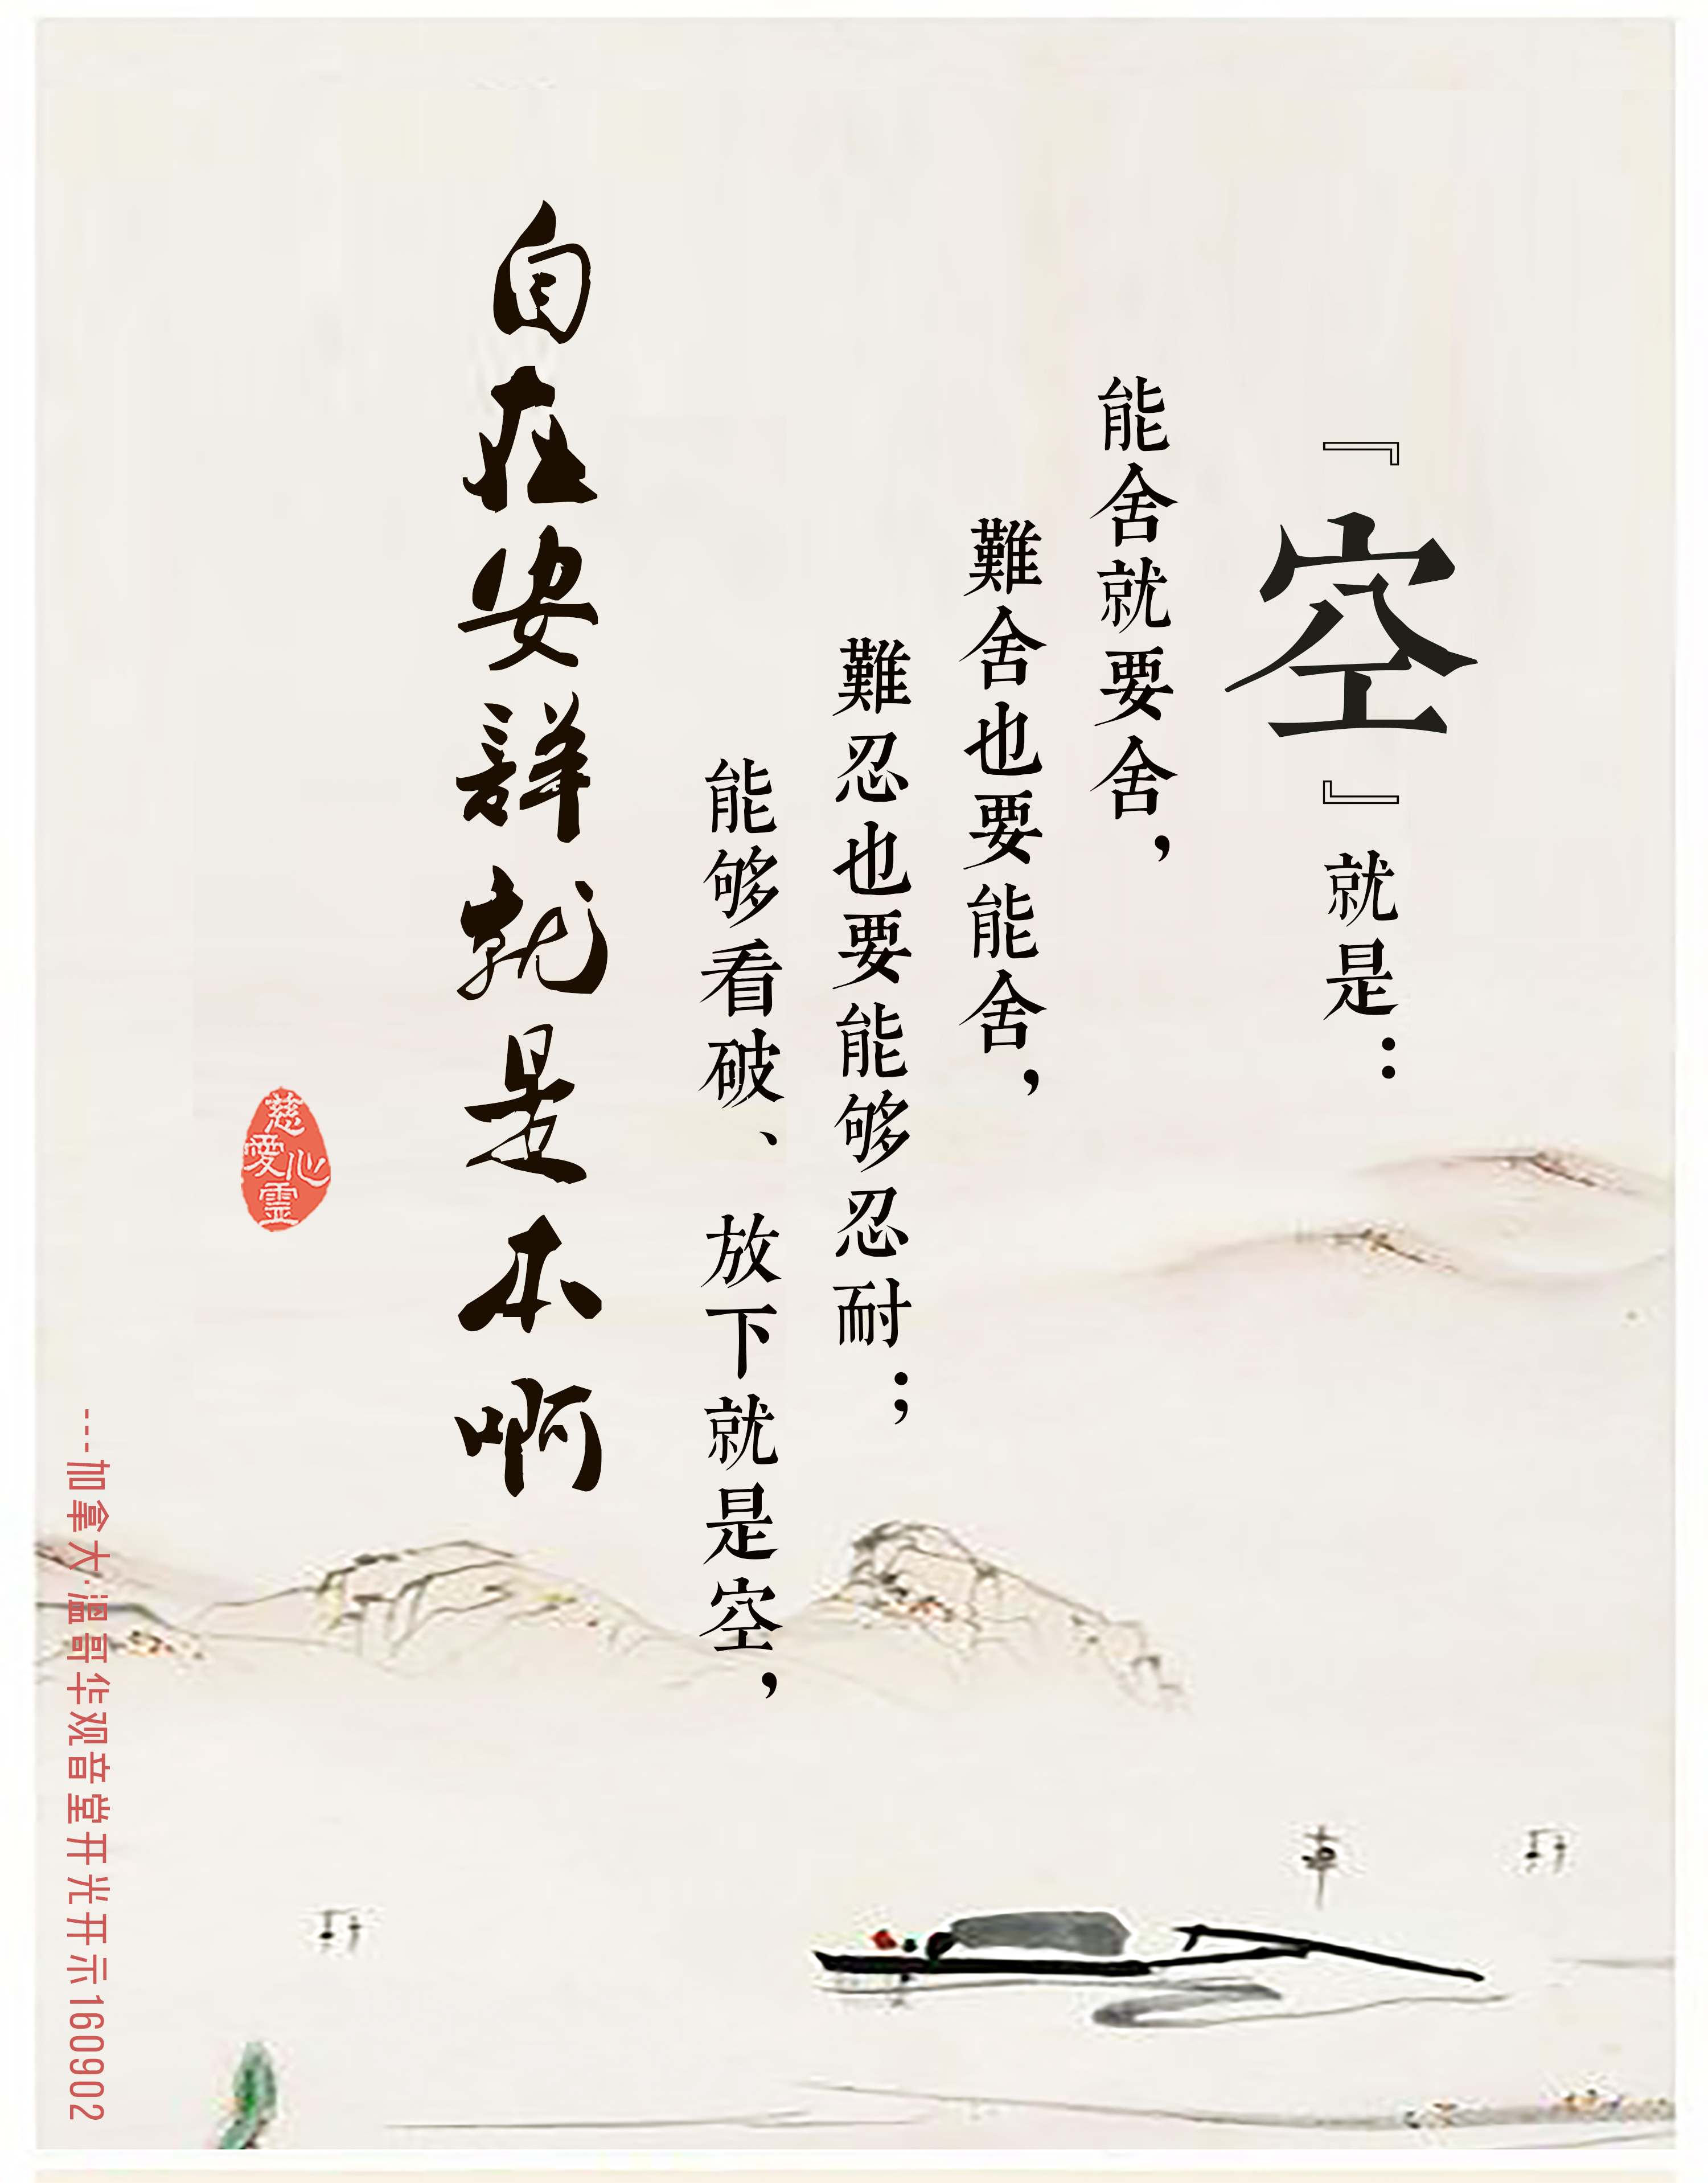 『空』就是：
能舍就要舍，
難舍也要能舍，
難忍也要能够忍耐；
能够看破、放下就是空，
自在安詳就是本啊
慈心愛靈
---加拿大·溫哥华观音堂开光开示160902